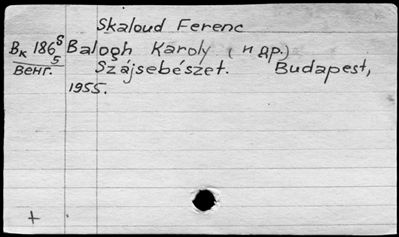 Skaloud Ferenc
Вк 186⁵/5 Balogh Karoly (и др.)
Венг. Szájsebészet. Budapest,
1955.
+